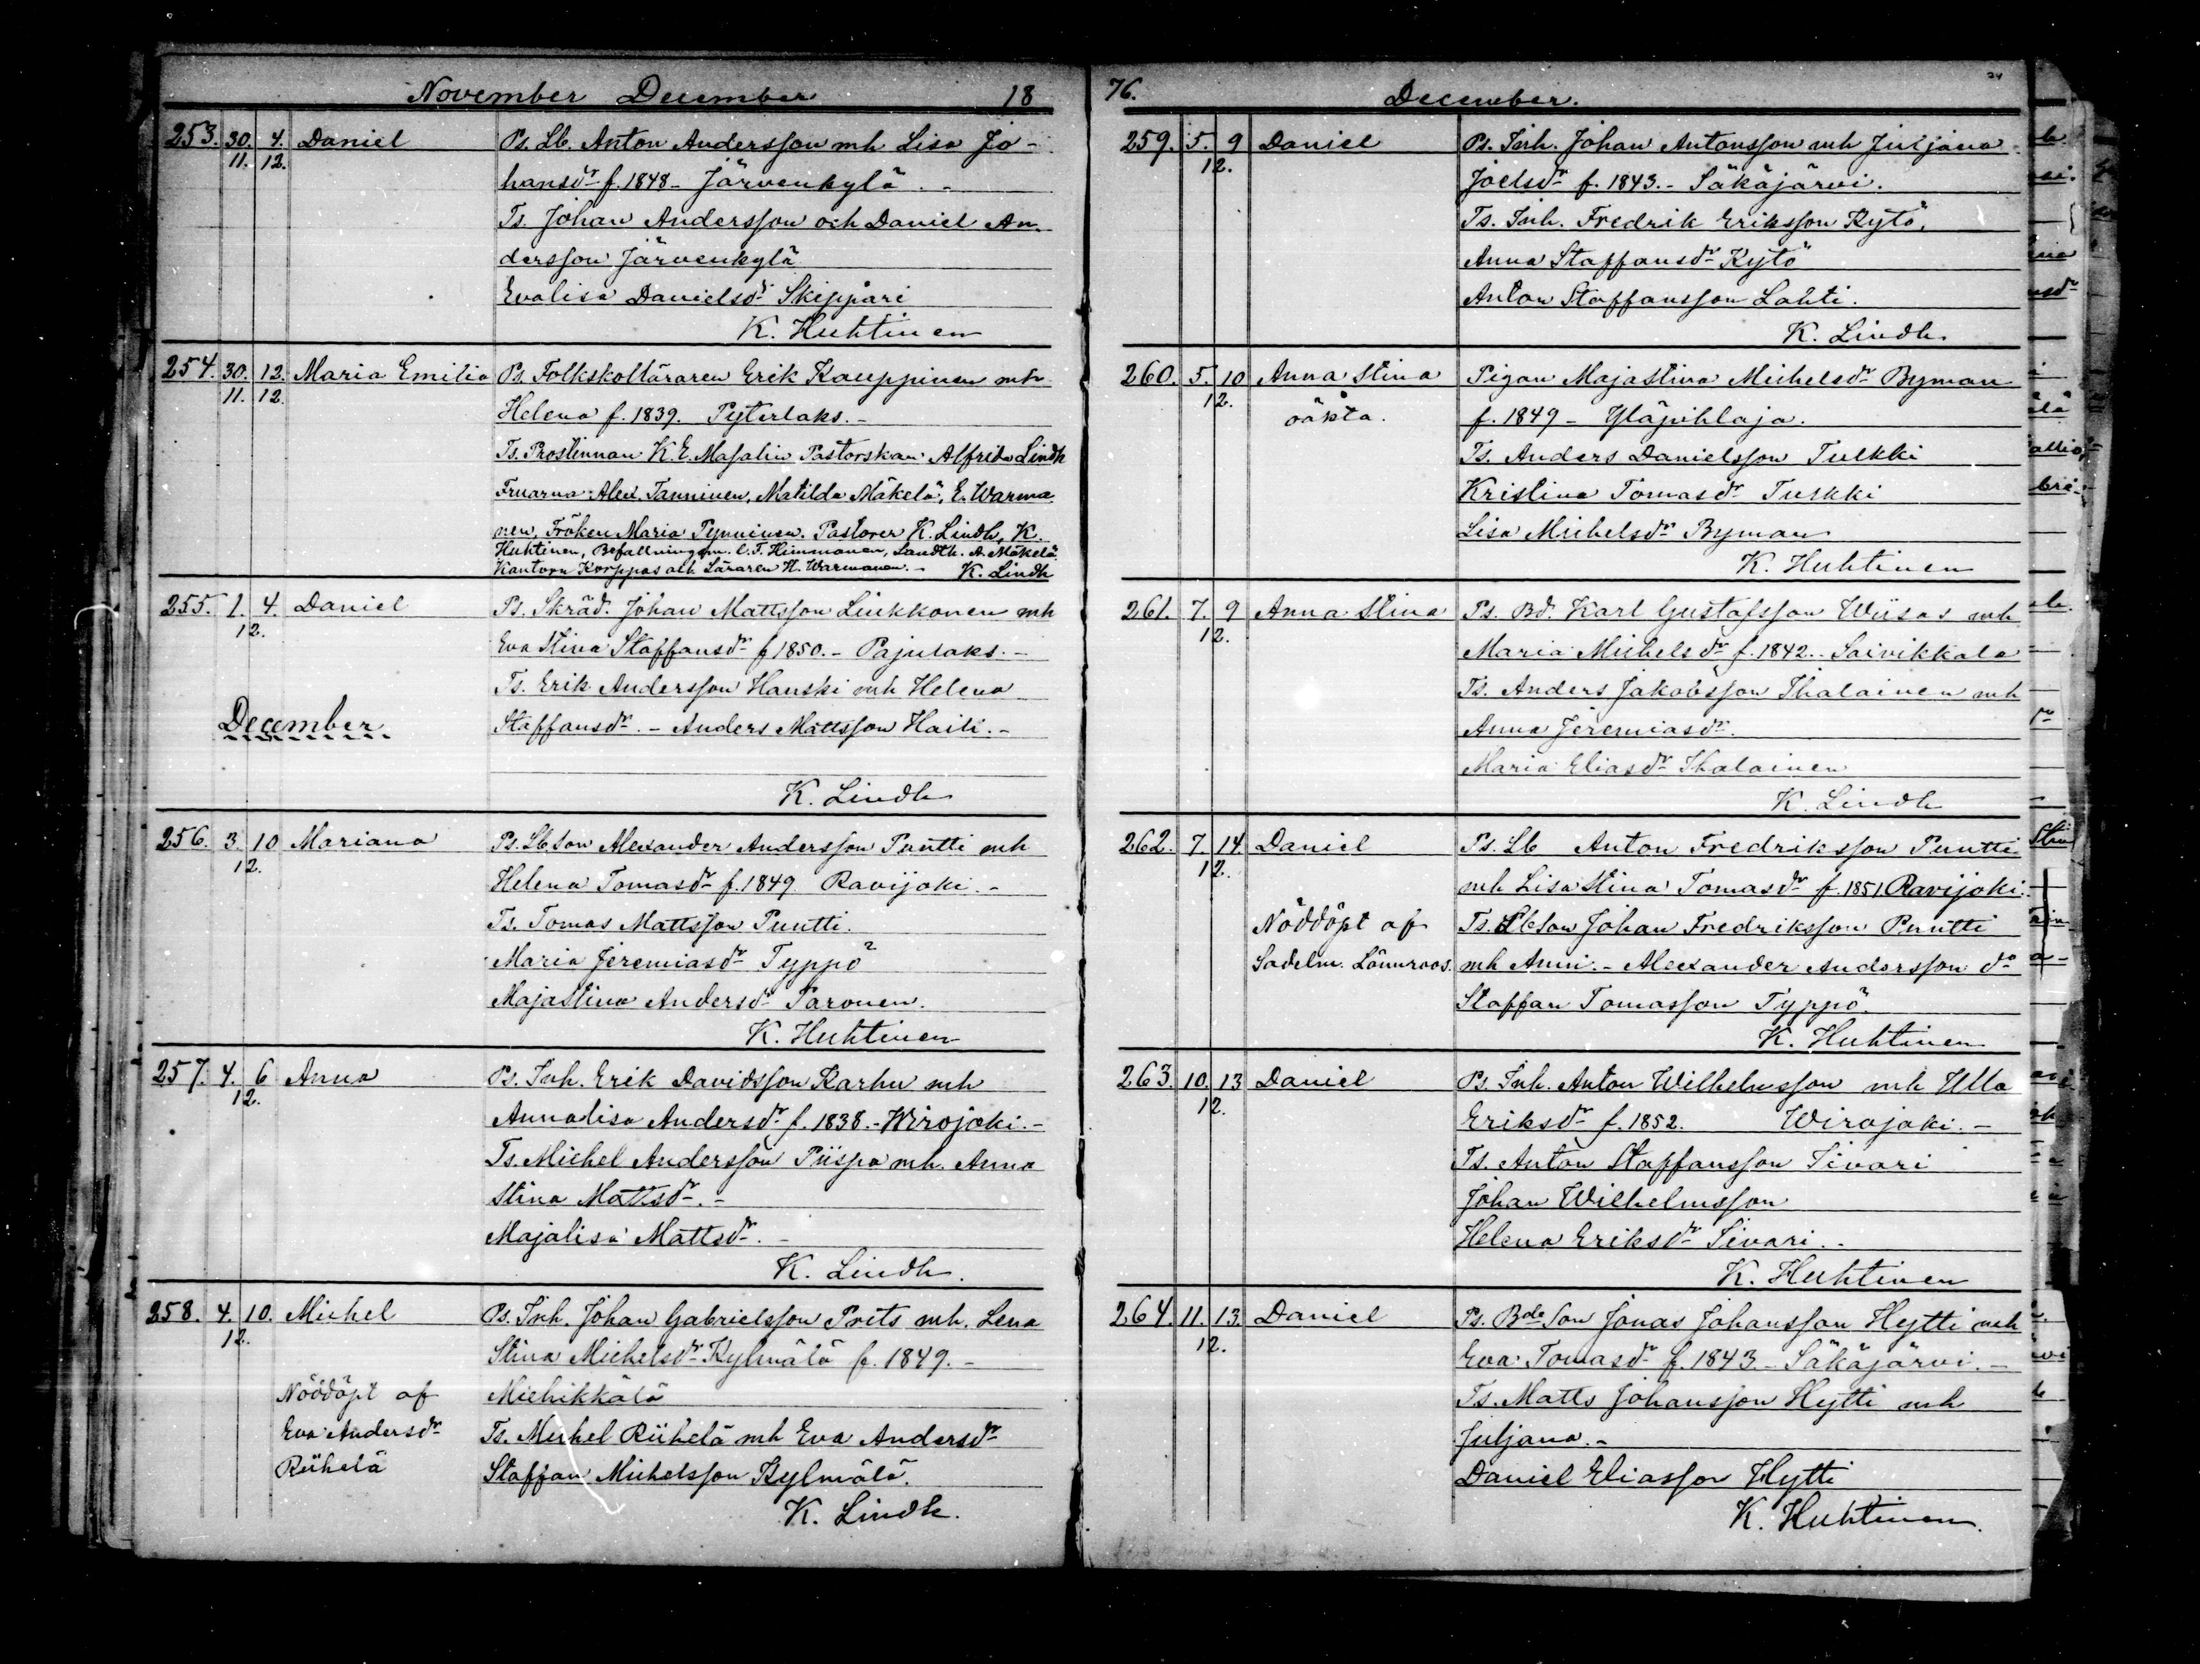 November December 18
253. 30. 4. Daniel Ps. Lb. Anton Andersson mh Lisa Jo-
11. 12. hansdr f. 1848 - Järvenkylä. -
Ts. Johan Andersson och Daniel An-
dersson Järvenkylä
Evalisa Danielsdr Skippari
K. Huhtinen
254. 30. 12. Maria Emilia Ps. Folkskolläraren Erik Kauppinen mh
11. 12. Helena f. 1839. Pyterlaks. -
Ts. Prostinnan K. E. Masalin Pastorskan Alfrida Lindh
Fruarna Alex. Tanninen, Matilda Mäkelä, E. Warma
nen, Fröken Maria Pynninen. Pastorer K. Lindh, K.
Huhtinen, Befallningsm. C. F. Himmanen, Landth. A. Mäkelä
Kantorn Korppas och Läraren H. Warmanen. - K. Lindh
255. 1. 4. Daniel Ps. Skräd. Johan Mattsson Liukkonen mh
12. Eva Stina Staffansdr f 1850. - Pajulaks. -
Ts. Erik Andersson Hauski mh Helena
December Staffansdr. - Anders Mattsson Haili. -
K. Lindh
256. 3. 10 Mariana Ps. Lb. Son Alexander Andersson Puntti mh
12. Helena Tomasdr f. 1849 Ravijoki. -
Ts. Tomas Mattsson Puntti.
Maria Jeremiasdr Typpö
Majastina Andersdr Paronen.
K. Huhtinen
257. 4. 6 Anna Ps. Inh. Erik Davidsson Karhu mh
12. Annalisa Andersdr f. 1838. - Wirojoki. -
Ts. Michel Andersson Piispa mh. Anna
Stina Mattsdr. -
Majalisa Mattsdr. -
K. Lindh.
258. 4. 10. Michel Ps. Inh. Johan Gabrielsson Prits mh. Lena
12. Stina Michelsdr Kylmälä f. 1849. -
Nöddöpt af Miehikkälä
Eva Andersdr Ts. Michel Riihelä mh Eva Andersdr
Riihelä Staffan Michelsson Kylmälä.
K. Lindh.
76. December.
259. 5. 9 Daniel Ps. Inh. Johan Antonsson mh Juljana
12. Joelsdr f. 1843. - Säkäjärvi.
Ts. Inh. Fredrik Eriksson Kytö,
Anna Staffansdr Kytö
Anton Staffansson Lahti.
K. Lindh.
260. 5. 10 Anna Stina Pigan Majastina Michelsdr Byman
12. oäkta. f. 1849 - Yläpihlaja.
Ts. Anders Danielsson Tulkki
Kristina Tomasdr Tulkki
Lisa Michelsdr Byman
K. Huhtinen
261. 7. 9 Anna Stina Ps. Bd. Karl Gustafsson Wiisas mh
12. Maria Michelsdr f. 1842. - Saivikkala
Ts. Anders Jakobsson Ihalainen mh
Anna Jeremiasdr.
Maria Eliasdr Ihalainen
K. Lindh
262. 7. 14. Daniel Ps. Lb Anton Fredriksson Puntti
12. mh Lisa Stina Tomasdr f. 1851. Ravijoki.
Nöddöpt af Ts. Lb Son Johan Fredriksson Puntti
Sadelm. Lönnroos. mh Anni. - Alexander Andersson do
Staffan Tomasson Typpö.
K. Huhtinen
263. 10. 13 Daniel Ps. Inh. Anton Wilhelmsson mh Ulla
12. Eriksdr f. 1852. Wirojoki. -
Ts. Anton Staffansson Sivari
Johan Wilhelmsson
Helena Eriksdr Sivari. -
K. Huhtinen
264. 11. 13. Daniel Ps. Bde Son Jonas Johansson Hytti mh
12. Eva Tomasdr f. 1843 - Säkäjärvi. -
Ts. Matts Johansson Hytti mh
Juljana. -
Daniel Eliasson Hytti
K. Huhtinen.